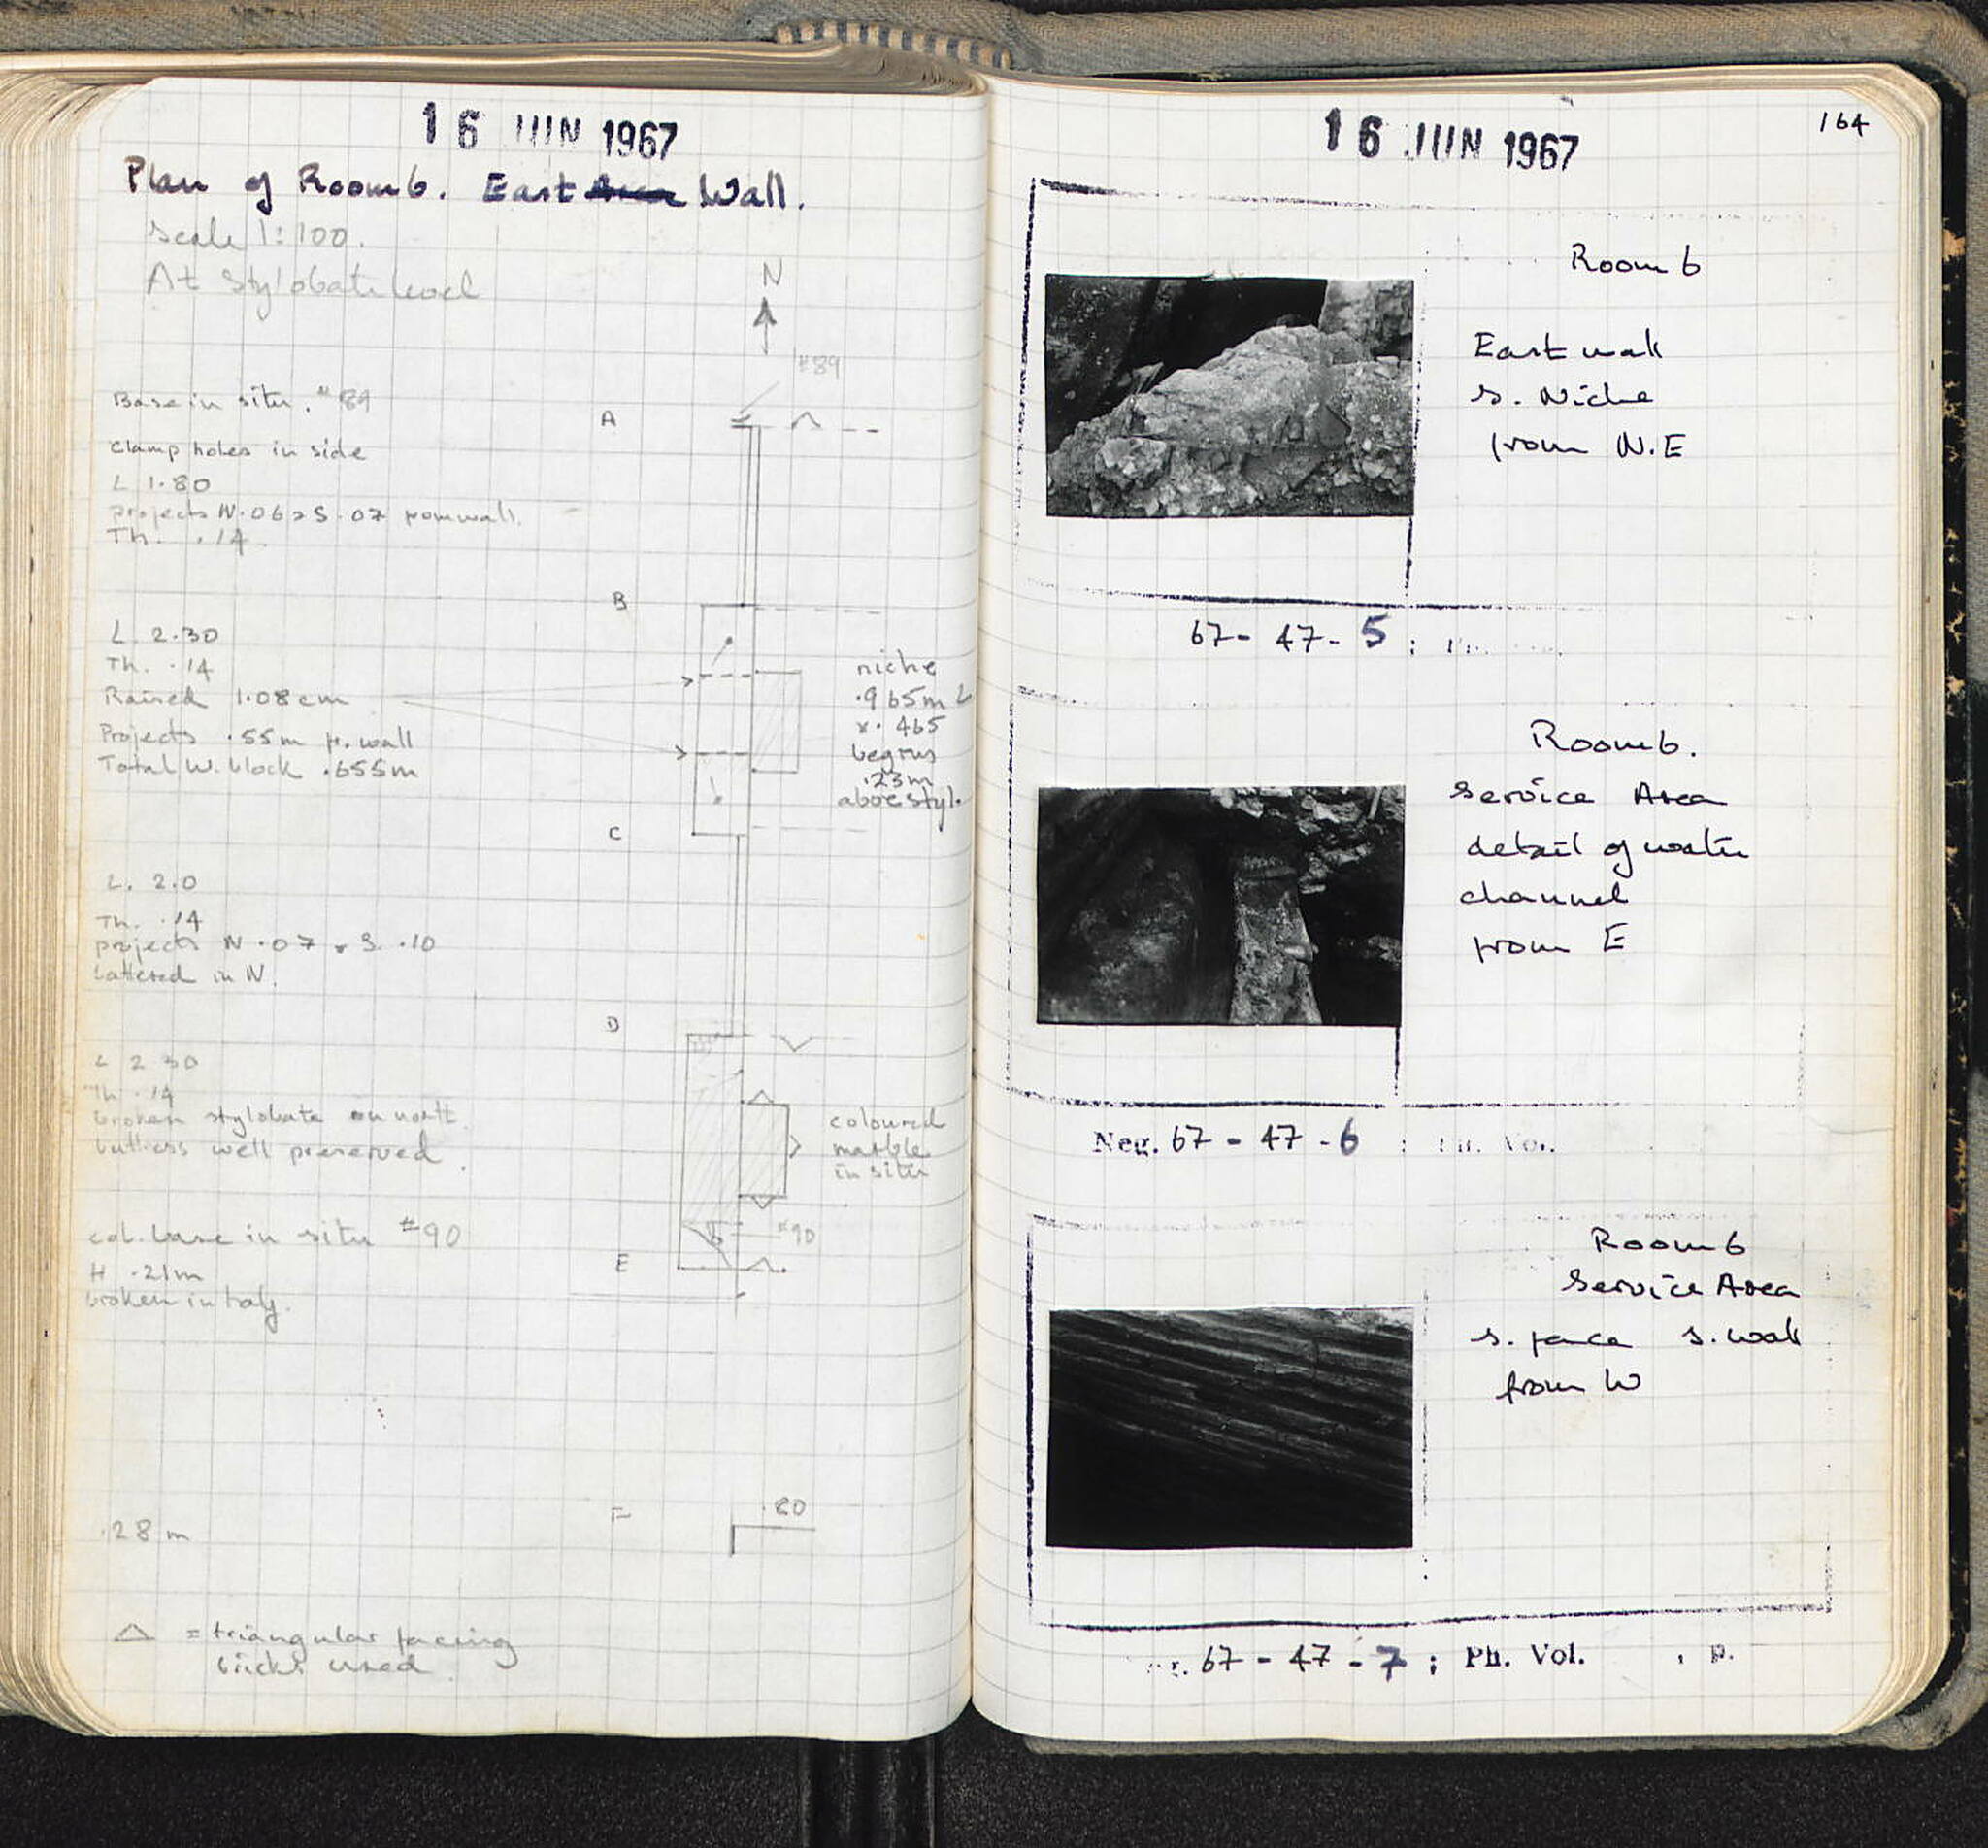 16 JUN 1967
Plan of Room 6. East Wall.
Scale 1:100.
At Stylobate level
N
#89
Base in situ. #89
A
Clamp holes in side
L 1.80
projects N .06 S .07 from wall.
Th. .14
B
L. 2.30
Th. .14
Raised 1.08cm
Projects .55m fr. wall
Total W. block .655m
niche
.965m L
x .465
begins
.23m
above styl.
C
L. 2.0
Th. .14
projects N .07 S. .10
battered in N.
D
L 2.30
Th .14
broken stylobate on north
buttress well preserved.
coloured
marble
in situ
col. base in situ #90
#90
H .21m
broken in half.
E
F
.80
.28m
△ = triangular facing
bricks used.
16 JUN 1967
164
Room 6
East wall
S. Niche
from N.E
67-47-5 ;
Room 6.
Service Area
detail of water
channel
from E
Neg. 67-47-6 ; Ph. Vol.
Room 6
Service Area
S. face S. wall
from W
67-47-7 ; Ph. Vol. , p.